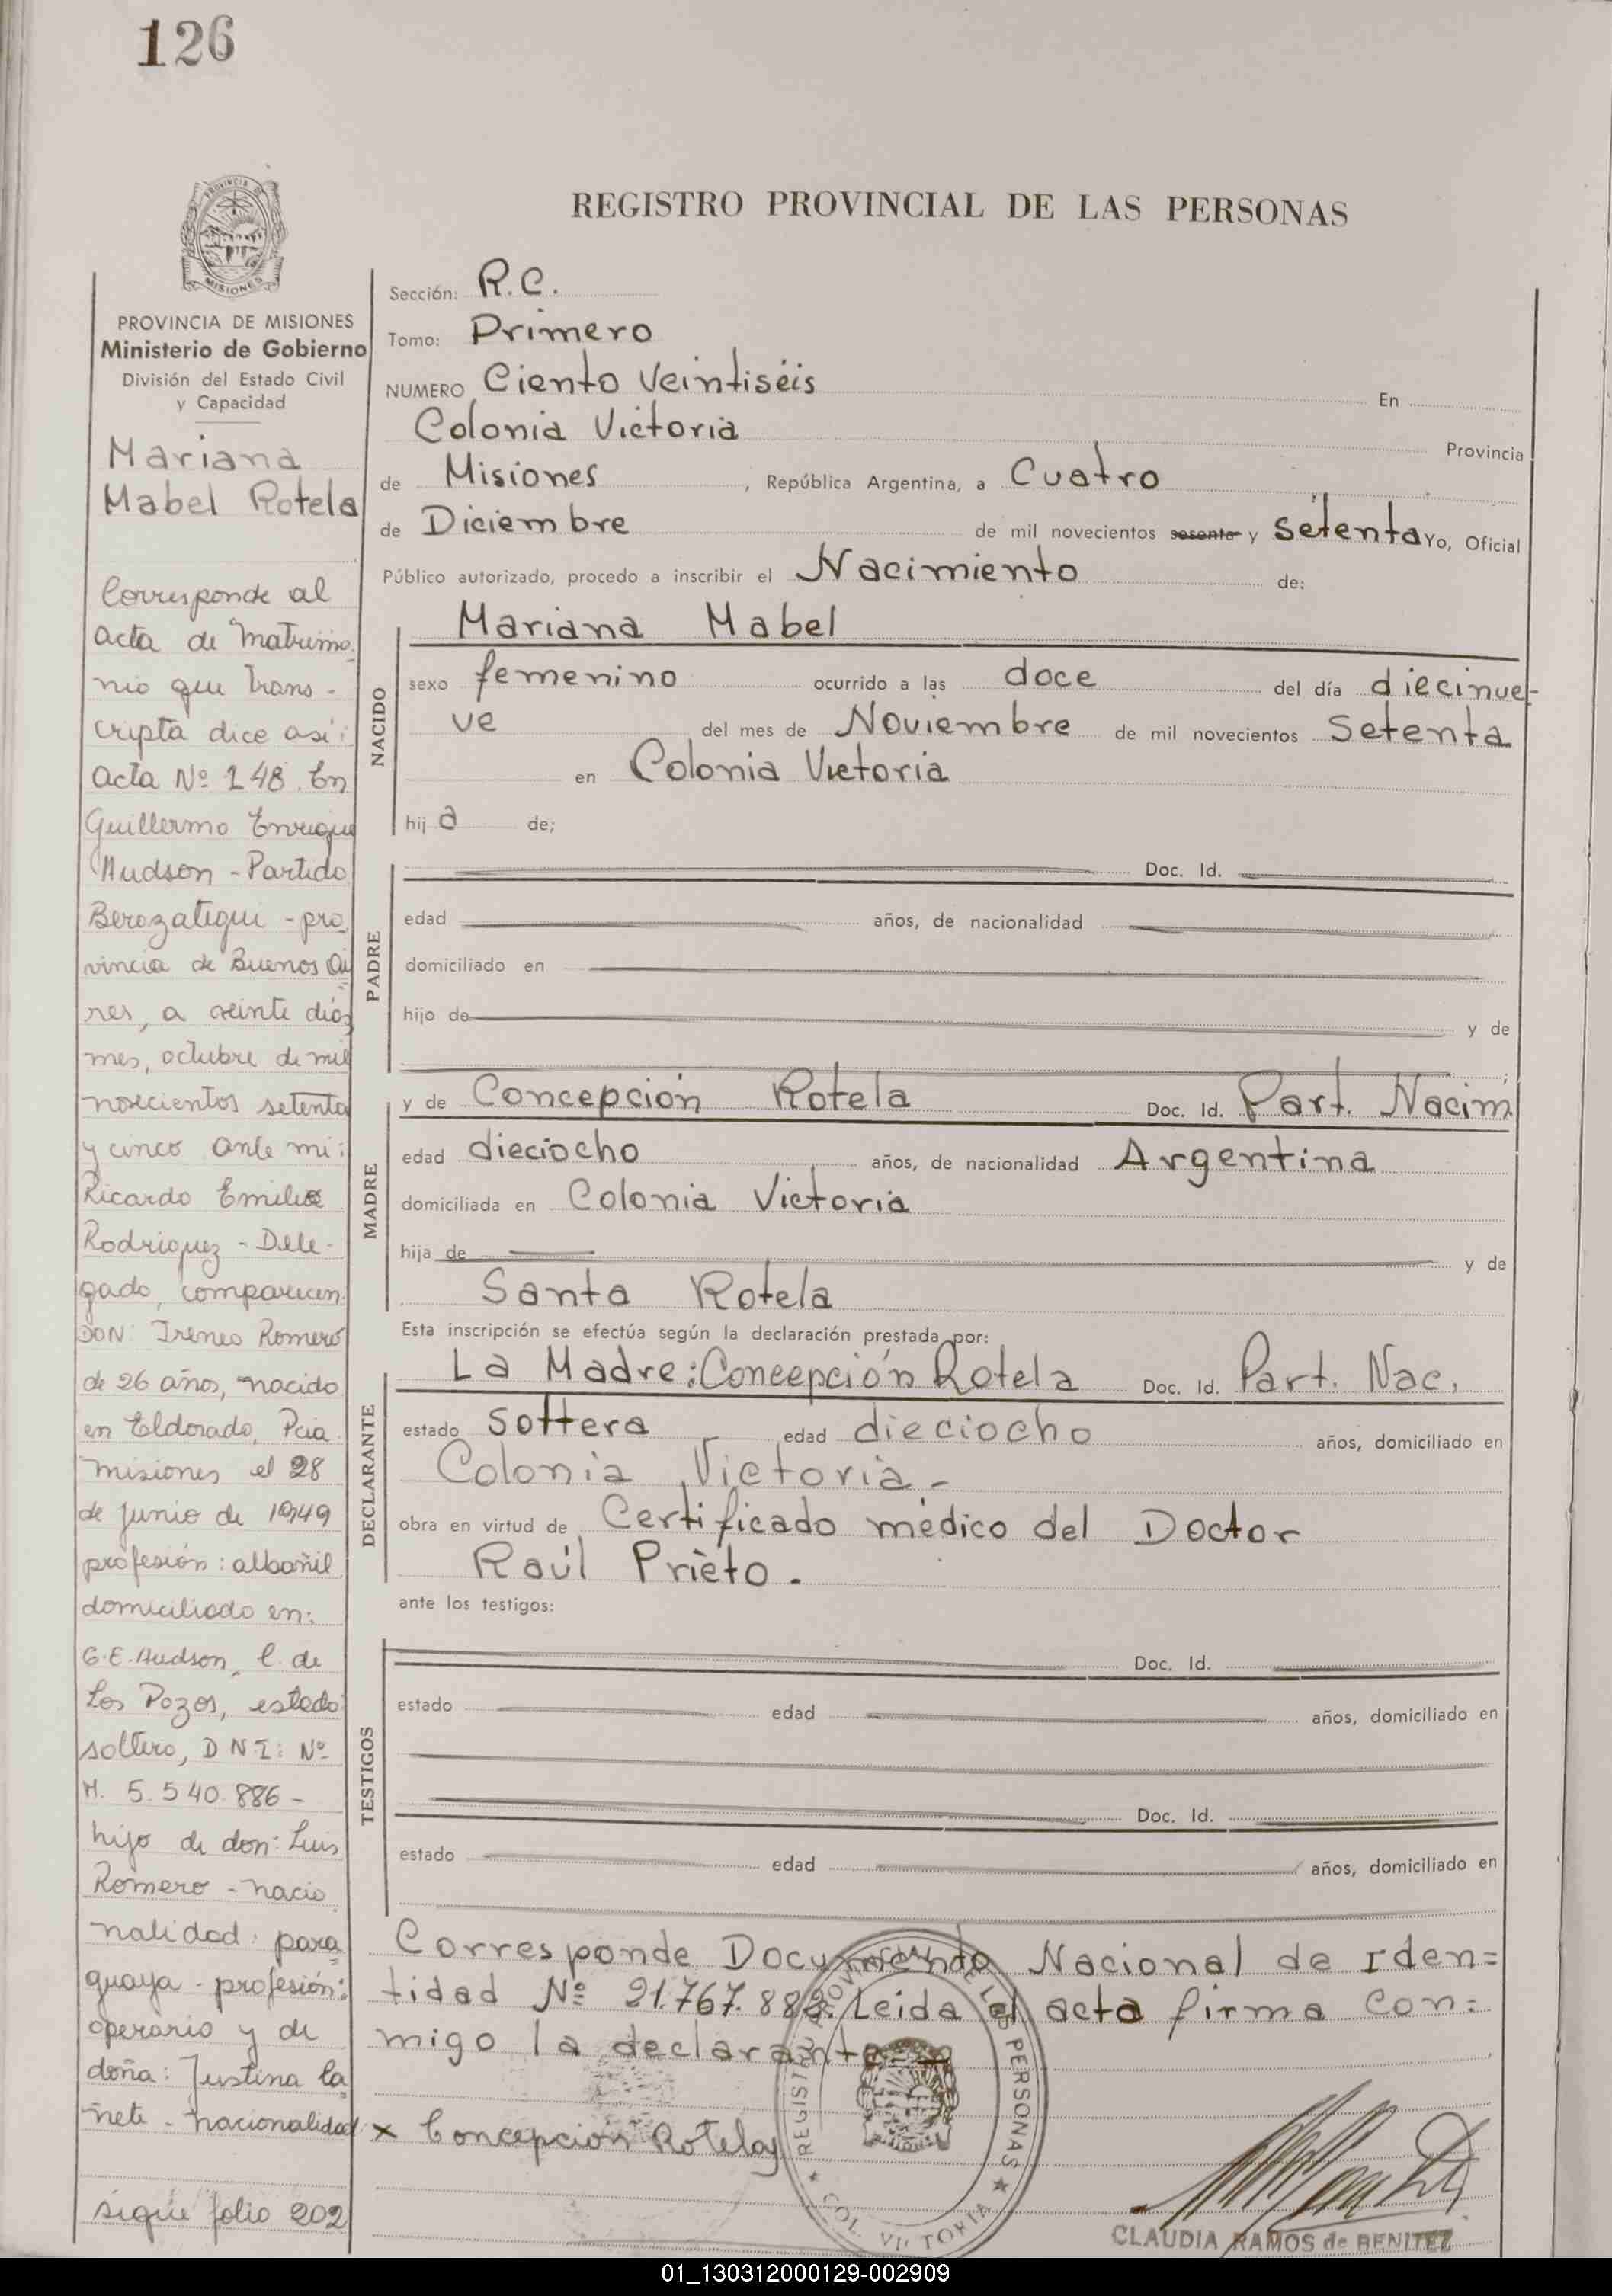 126
REGISTRO PROVINCIAL DE LAS PERSONAS
PROVINCIA DE MISIONES
Ministerio de Gobierno
División del Estado Civil
y Capacidad
Mariana
Mabel Rotela
Corresponde al
acta de matrimo
nio que trans-
cripta dice así:
acta Nº 148. En
Guillermo Enrique
Hudson - Partido
Berazategui - pro
vincia de Buenos Ai
res, a veinte días
mes, octubre de mil
novecientos setenta
y cinco ante mi:
Ricardo Emilio
Rodriguez - Dele-
gado, comparecen
DON: Ireneo Romero
de 26 años, nacido
en Eldorado, Pcia
misiones el 28
de junio de 1949
profesión: albañil
domiciliado en:
G.E. Hudson, C. de
Los Pozos, estado
soltero, D N I: Nº
M. 5.540.886 -
hijo de don: Luis
Romero - nacio
nalidad: para
guaya - profesión:
operario y de
doña: Justina Ca
ñete - nacionalidad
sigue folio 202
Sección: R.C.
Tomo: Primero
NUMERO Ciento Veintiséis En
Colonia Victoria Provincia
de Misiones, República Argentina, a Cuatro
de Diciembre de mil novecientos sesenta y Setenta Yo, Oficial
Público autorizado, procedo a inscribir el Nacimiento de:
NACIDO
Mariana Mabel
sexo femenino ocurrido a las doce del día diecinue-
ve del mes de Noviembre de mil novecientos Setenta
en Colonia Victoria
hij a de;
PADRE
Doc. Id.
edad años, de nacionalidad
domiciliado en
hijo de y de
MADRE
y de Concepción Rotela Doc. Id. Part. Nacim
edad dieciocho años, de nacionalidad Argentina
domiciliada en Colonia Victoria
hija de y de
Santa Rotela
Esta inscripción se efectúa según la declaración prestada por:
DECLARANTE
La Madre: Concepción Rotela Doc. Id. Part. Nac.
estado Soltera edad dieciocho años, domiciliado en
Colonia Victoria -
obra en virtud de Certificado médico del Doctor
Raúl Prieto.
ante los testigos:
TESTIGOS
Doc. Id.
estado edad años, domiciliado en
Doc. Id.
estado edad años, domiciliado en
Corresponde Documento Nacional de Iden=
tidad Nº 21.767.882. Leida el acta firma con=
migo la declarante
x Concepción Rotela
REGISTRO PROVINCIAL DE LAS PERSONAS
COL. VICTORIA
MISIONES
CLAUDIA RAMOS de BENITEZ
01_130312000129-002909